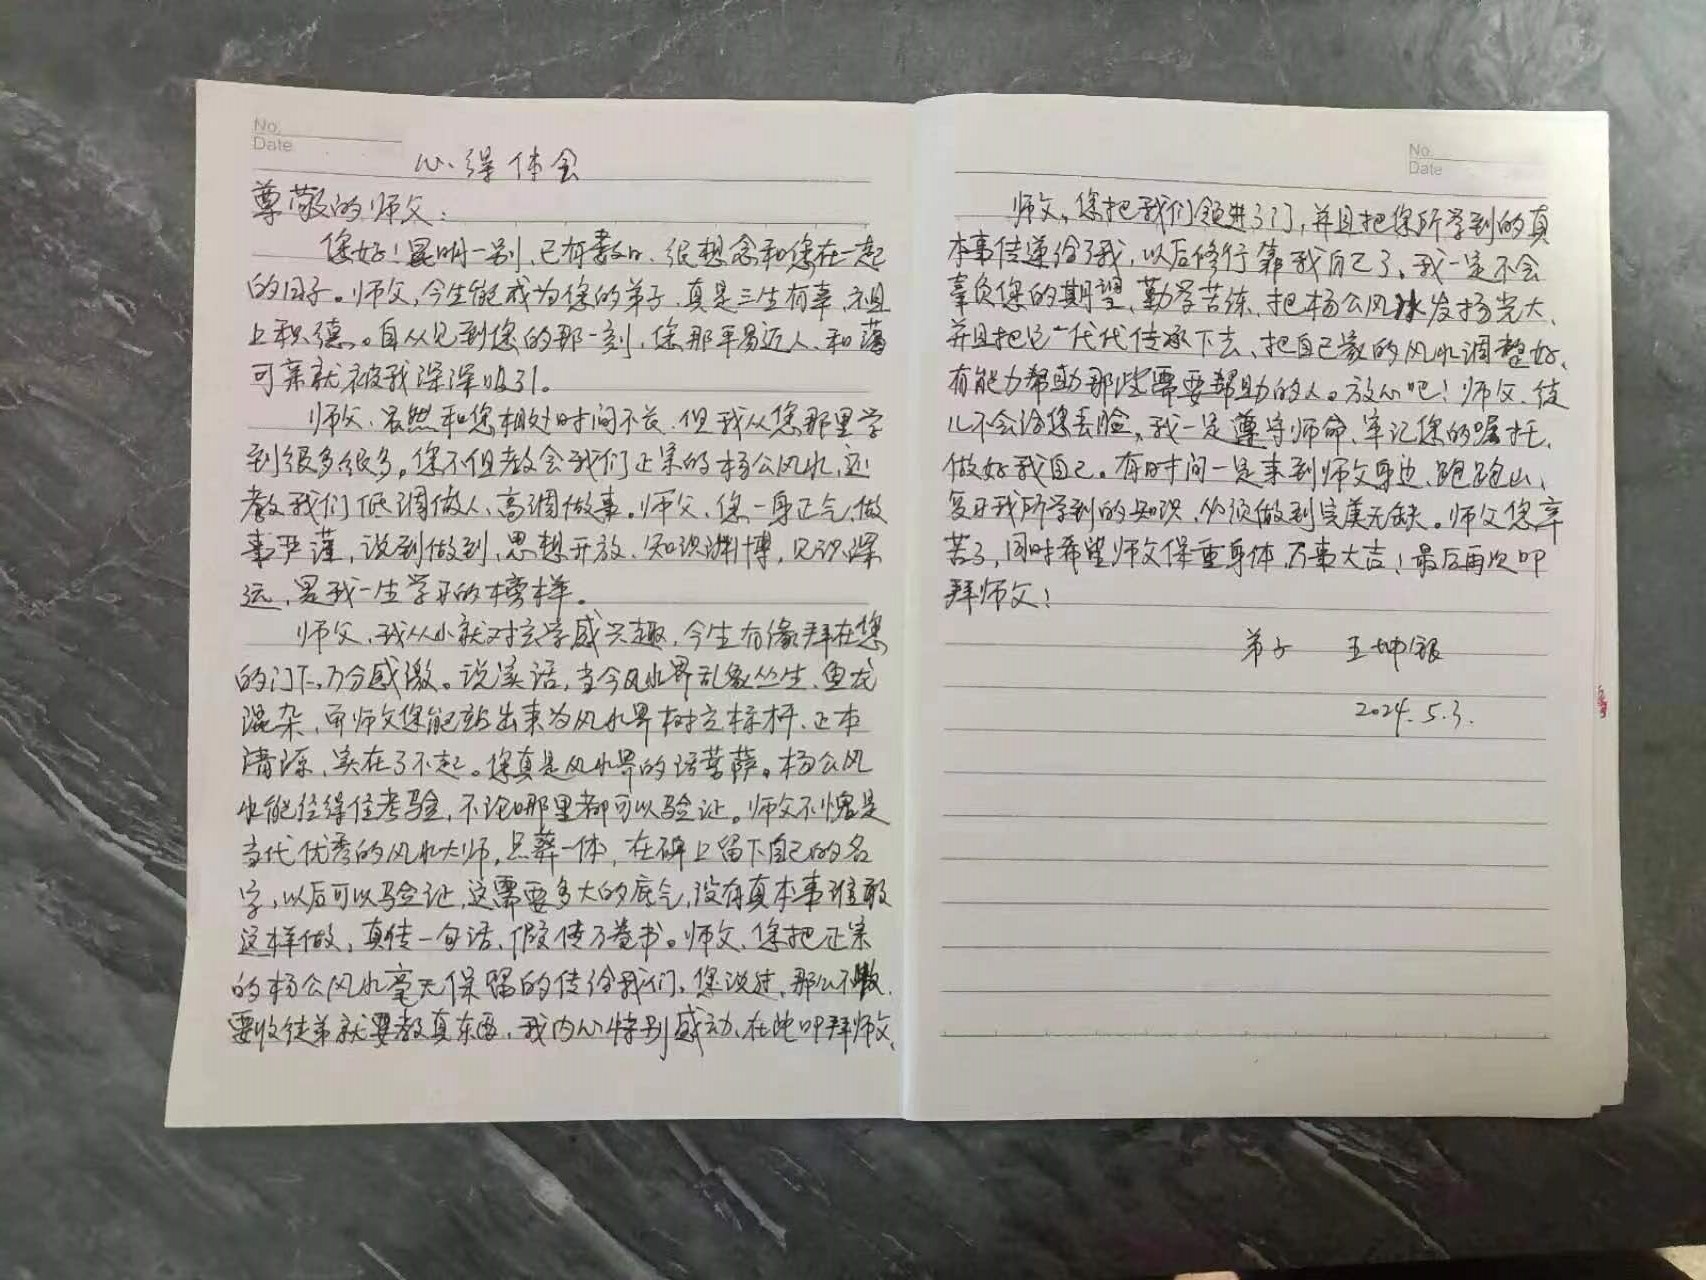 No.
Date
心得体会
尊敬的师父:
您好!昆明一别,已有数日,很想念和您在一起
的日子。师父,今生能成为您的弟子,真是三生有幸,祖
上积德。自从见到您的那一刻,您那平易近人、和蔼
可亲就被我深深吸引。
师父,虽然和您相处时间不长,但我从您那里学
到很多很多。您不但教会我们正宗的杨公风水,还
教我们低调做人、高调做事。师父,您一身正气,做
事严谨,说到做到,思想开放,知识渊博,见识深
远,是我一生学习的榜样。
师父,我从小就对玄学感兴趣,今生有缘拜在您
的门下,万分感激。说实话,当今风水界乱象丛生,鱼龙
混杂,而师父您能站出来为风水界树立标杆,正本
清源,实在了不起。您真是风水界的活菩萨。杨公风
水能经得住考验,不论哪里都可以验证。师父不愧是
当代优秀的风水大师,点葬一体,在碑上留下自己的名
字,以后可以验证,这需要多大的底气,没有真本事谁敢
这样做,真传一句话,假传万卷书。师父,您把正宗
的杨公风水毫无保留的传给我们,您说过,那么不教,
要收徒弟就要教真东西,我内心特别感动,在此叩拜师父,
No.
Date
师父,您把我们领进了门,并且把您所学到的真
本事传递给了我,以后修行靠我自己了。我一定不会
辜负您的期望,勤学苦练,把杨公风水发扬光大,
并且把它一代代传承下去,把自己家的风水调整好,
有能力帮助那些需要帮助的人。放心吧!师父,徒
儿不会给您丢脸,我一定遵守师命,牢记您的嘱托,
做好我自己。有时间一定来到师父身边,跑跑山,
复习我所学到的知识,必须做到完美无缺。师父您辛
苦了,同时希望师父保重身体,万事大吉!最后再次叩
拜师父!
弟子 王坤银
2024.5.3.